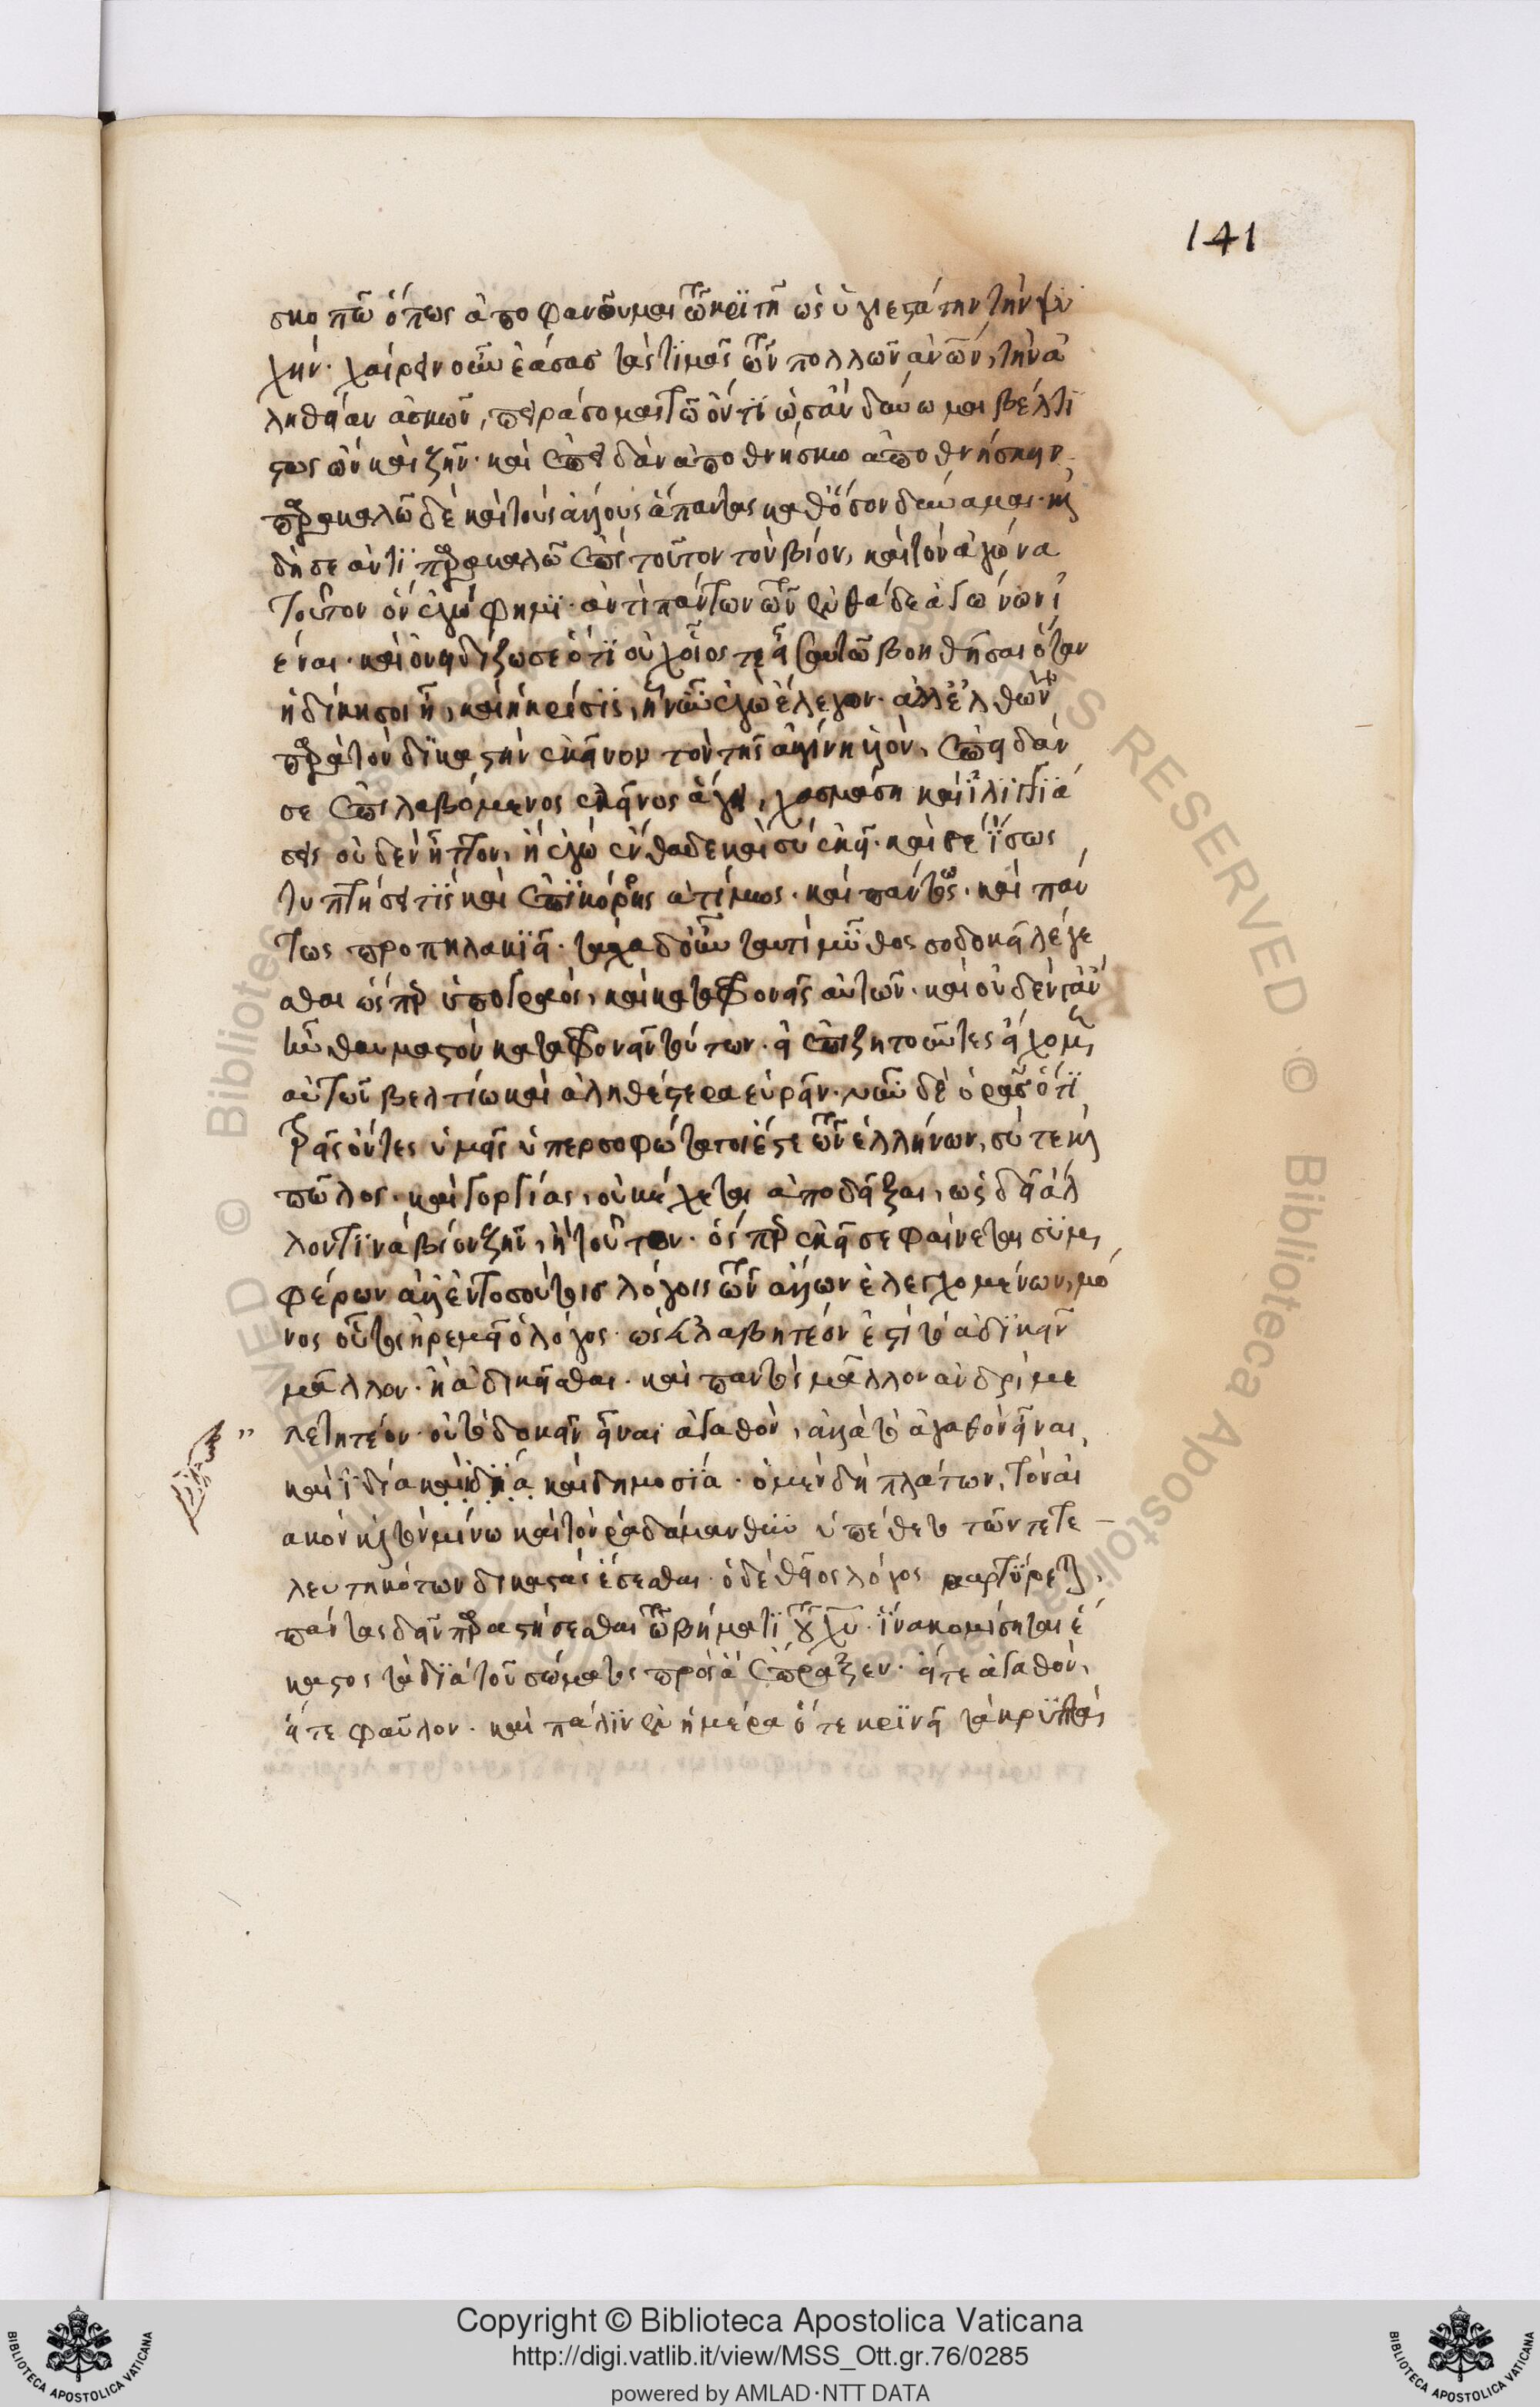 141
σκοπῶ ὅπως ἀποφανοῦμαι τῶ κριτῆ ὡς ὑγιεστάτην τὴν ψυ
χήν· χαίρειν οὖν ἐάσας τὰς τιμὰς τῶν πολλῶν ἀνων, τὴν ἀ
λήθειαν ἀσκῶν, πειράσομαι τῶ ὄντι ὡς ἂν δύνωμαι βέλτι
στος ὢν καὶ ζῆν· καὶ ἐπειδὰν ἀποθνήσκω ἀποθνήσκειν·
παρακαλῶ δὲ καὶ τοὺς ἄλλους ἅπαντας καθόσον δύναμαι· καὶ
δὴ σε ἀντιπαρακαλῶ ἐπὶ τοῦτον τὸν βίον, καὶ τὸν ἀγῶνα
τοῦτον ὃν ἐγώ φημι· ἀντὶ πάντων τῶν ἐνθάδε ἀγώνων
εἶναι· καὶ ὀνειδίζω σε ὅτι οὐχ οἷος τ' εἶ σαυτῶ βοηθῆσαι ὅταν
ἡ δίκη σοι ἦ, καὶ ἡ κρίσις, ἣν νῦν ἐγὼ ἔλεγον· ἀλλ' ἐλθὼν
παρὰ τὸν δικαστὴν ἐκεῖνον τὸν τῆς αἰγίνης υἱὸν, ἐπειδάν
σε ἐπιλαβόμενος ἐκεῖνος ἄγη, χασμάση καὶ ἰλιγγιά
σεις οὐδὲν ἧττον, ἢ ἐγὼ ἐνθάδε καὶ σὺ ἐκεῖ· καί σε ἴσως
τυπτήσει τις καὶ ἐπὶ κόρρης ἀτίμως· καὶ πάντως· καὶ πάν
τως προπηλακιεῖ· τάχα δ' οὖν ταῦτι μῦθος σοι δοκεῖ λέγε
σθαι ὥσπερ ὑπὸ γραός, καὶ καταφρονεῖς αὐτῶν· καὶ οὐδέν γ' ἂν
ἦν θαυμαστὸν καταφρονεῖν τούτων· εἰ ἐπιζητοῦντες εἴχομεν
αὐτῶν βελτίω καὶ ἀληθέστερα εὑρεῖν· νῦν δὲ ὁρᾶς ὅτι
τρεῖς ὄντες ὑμεῖς ὑπερσοφώτατοί ἐστε τῶν ἑλλήνων, σύ τε καὶ
πῶλος· καὶ γοργίας, οὐκ ἔχεται ἀποδεῖξαι, ὡς δεῖ ἄλ
λον τινὰ βίον ζῆν, ἢ τοῦτον· ὅσπερ ἐκεῖσε φαίνεται συμ
φέρων ἀλλ' ἐν τοσούτοις λόγοις τῶν ἄλλων ἐλεγχομένων, μό
νος οὗτος ἠρεμεῖ ὁ λόγος· ὡς εὐλαβητέον ἐστὶ τὸ ἀδικεῖν
μᾶλλον· ἢ ἀδικεῖσθαι· καὶ παντὸς μᾶλλον ἀνδρὶ με
λετητέον· οὐ τὸ δοκεῖν εἶναι ἀγαθὸν, ἀλλὰ τὸ ἀγαθὸν εἶναι,
καὶ ἰδία καὶ ἰδία καὶ δημοσία· ὁ μὲν δὴ πλάτων, τὸν αἰ
ακὸν καὶ τὸν μίνω καὶ τὸν ῥαδάμανθυν ὑπέθετο τῶν τετε
λευτηκότων δικαστὰς ἔσεσθαι· ὁ δὲ θεῖος λόγος μαρτύρεται,
πάντας δεῖν παραστήσεσθαι τῶ βήματι τοῦ χυ· ἵνα κομίσηται ἕ
καστος τὰ διὰ τοῦ σώματος πρὸς ἃ ἔπραξεν· εἴτε ἀγαθὸν,
εἴτε φαῦλον· καὶ πάλιν ἐν ἡμέρα ὅτε κρινεῖ τὰ κρυπτὰ
Copyright © Biblioteca Apostolica Vaticana
http://digi.vatlib.it/view/MSS_Ott.gr.76/0285
powered by AMLAD·NTT DATA